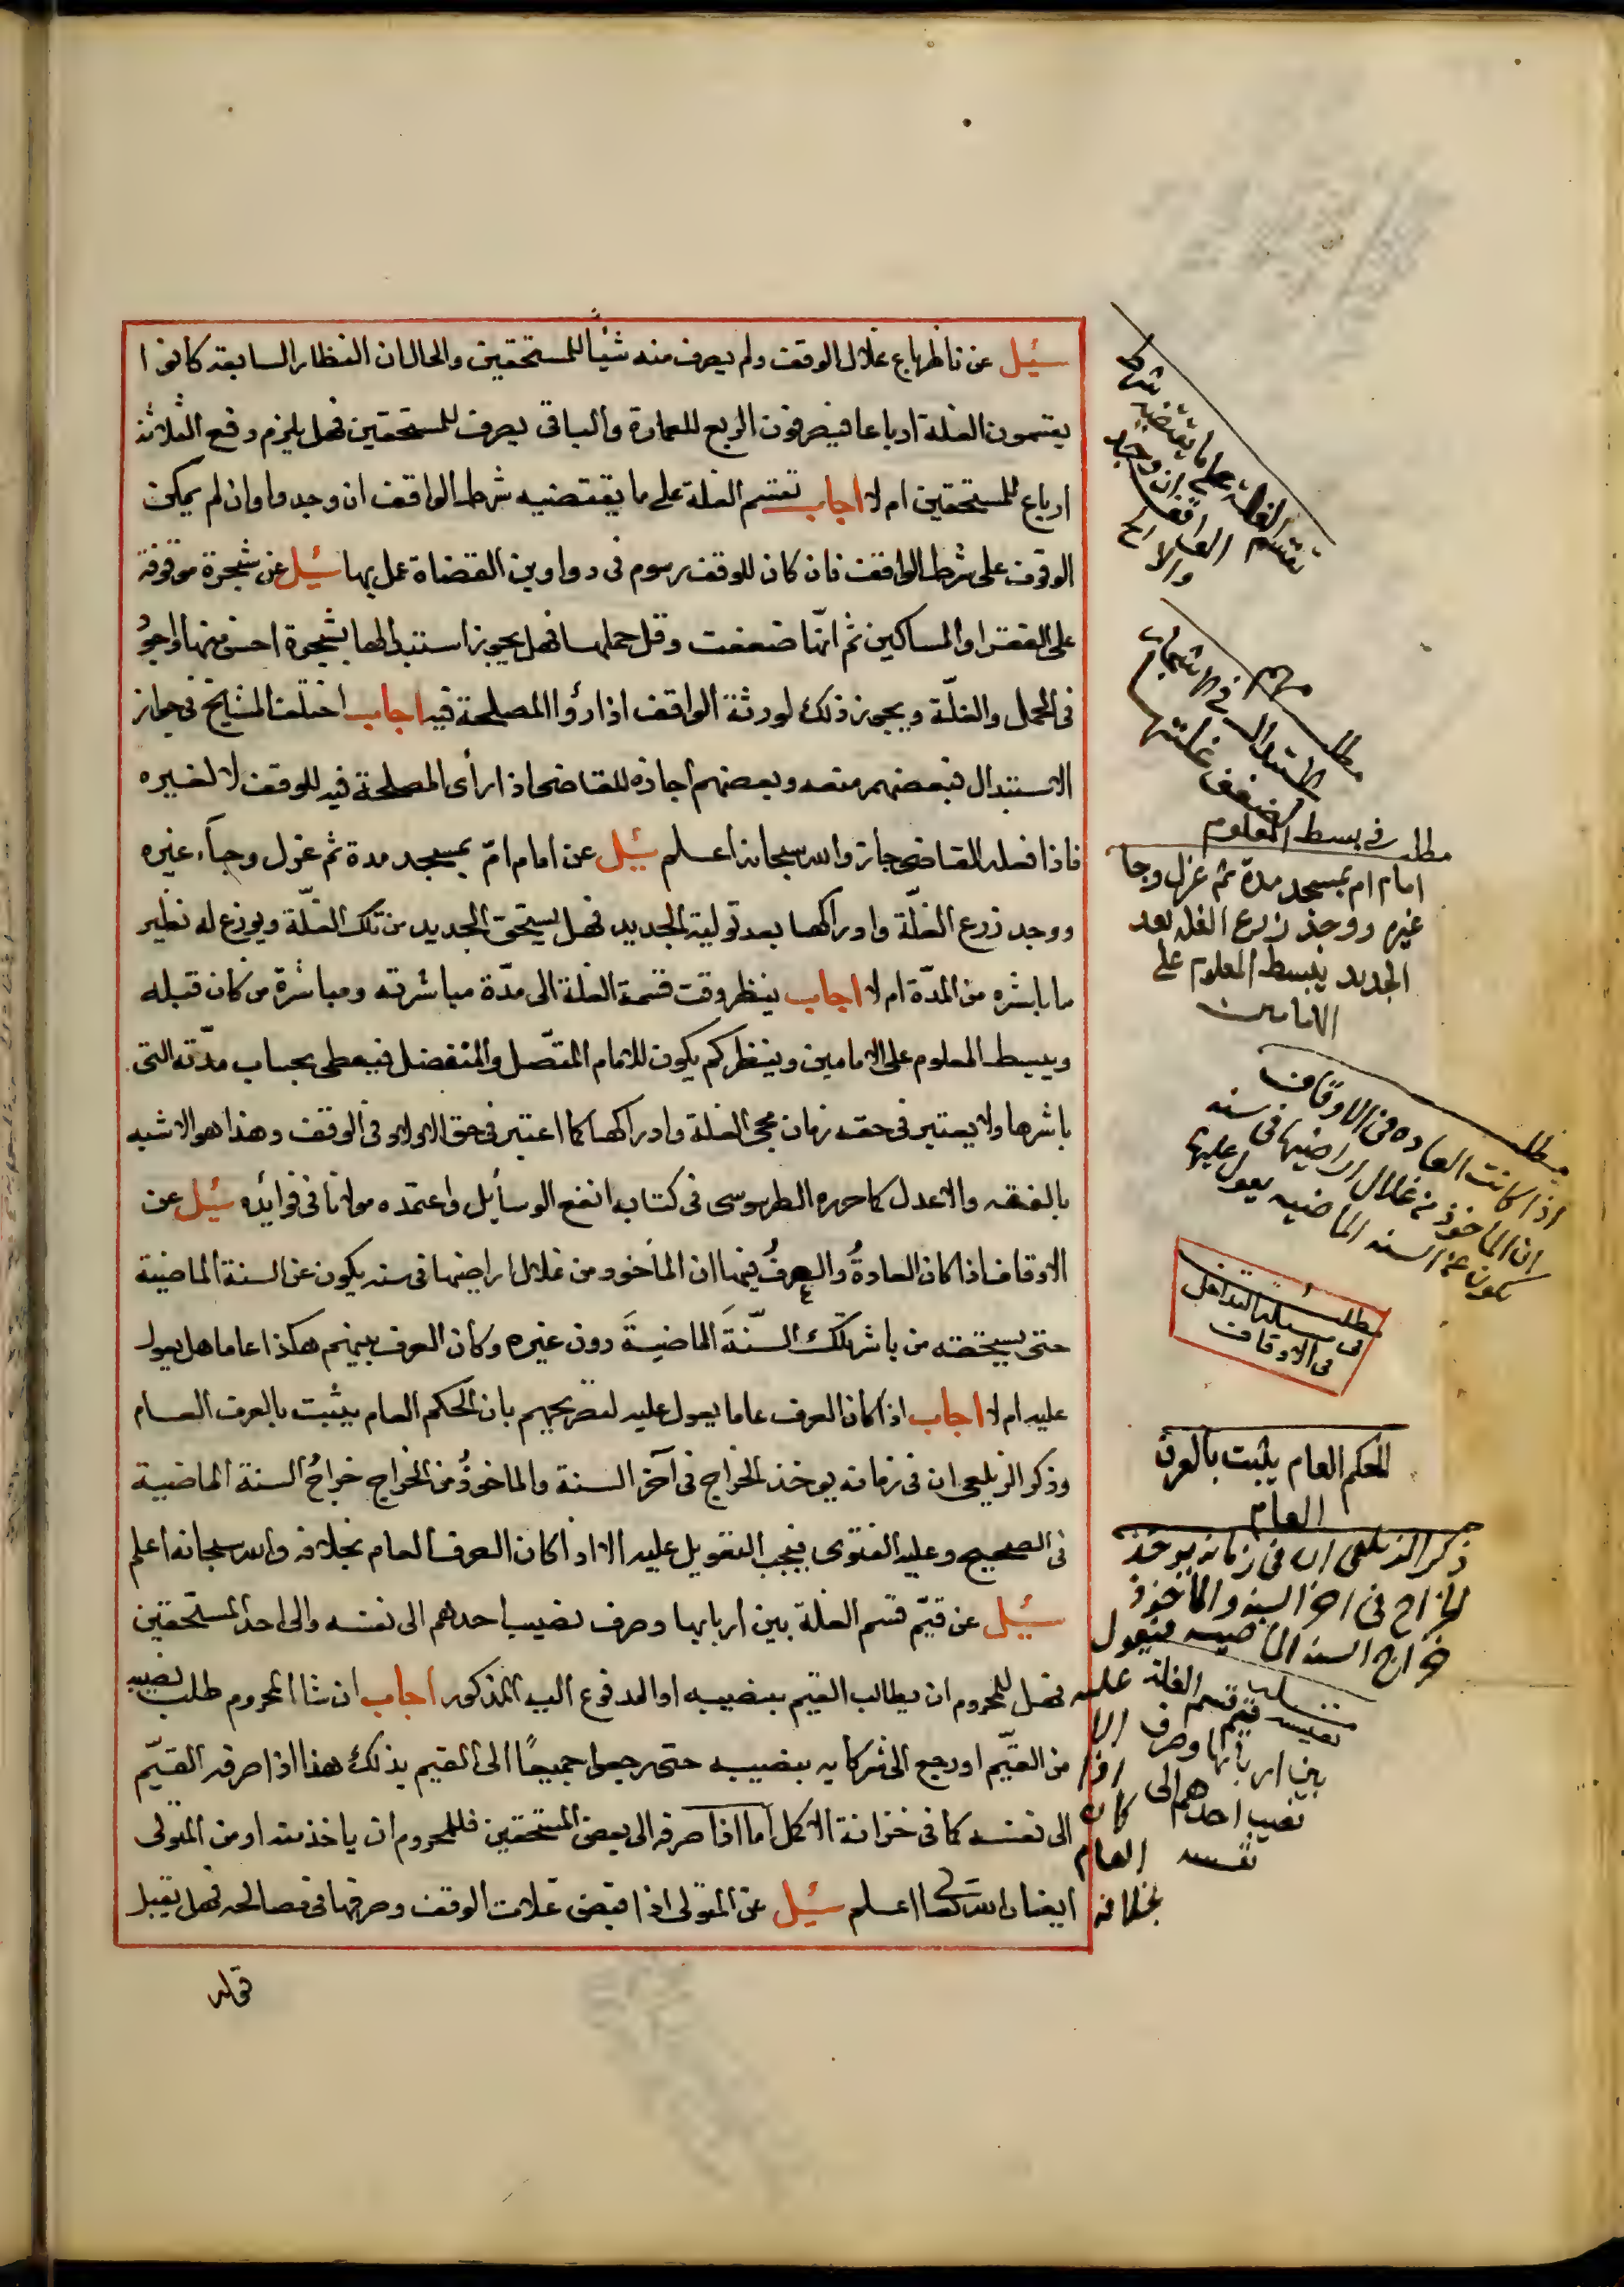 سئل عن ناظر باع غلال الوقف ولم يصرف منه شيأ للمستحقين والحال ان النظار السابقة كانوا
يقتمون الغلة ارباعا فيصرفون الربع للعمارة والباقى يصرف للمستحقين فهل يلزم دفع الثلاثة
ارباع للمستحقين ام لا اجاب تقسم الغلة على ما يقتضيه شرط الواقف ان وجد وا وان لم يمكن
الوقوف على شرط الواقف فان كان للوقف رسوم فى دواوين القضاة عمل بها سئل عن شجرة موقوفة
على الفقرا والمساكين ثم انّها ضعفت وقل حملها فهل يجوز استبدالها بشجرة احسن منها واجودُ
فى الحمل والغلّة ويجوز ذلك لورثة الواقف اذا رؤا المصلحة فيه اجاب اختلف المشايخ فى جواز
الاستبدال فبعضهم منعه وبعضهم اجازه للقاضى اذا رأى المصلحة فيه للوقف لا لغيره
فاذا فعله القاضى جاز والله سبحانه اعلم سئل عن امام امّ بمسجد مدة ثم عزل وجاء غيره
ووجد زرع الغلّة وادراكها بعد تولية الجديد فهل يستحق الجديد من تلك الغلّة ويوزع له نظير
ما باشره من المدّة ام لا اجاب ينظر وقت قسمة الغلة الى مدّة مباشرته ومباشرة من كان قبله
ويبسط المعلوم على الامامين وينظر كم يكون للامام المتّصل والمنفصل فيعطى بحساب مدّته التى
باشرها ولا يعتبر فى حقه زمان مجئ الغلة وادراكها كما اعتبر فى حق الاولاد فى الوقف وهذا هو الاشبه
بالفقه والاعدل كما حرره الطرسوسى فى كتاب انفع الوسأيل واعتمده مولانا فى فوائده سئل عن
الاوقاف اذا كان العادةُ والعرفُ فيها ان المأخوذ من غلال اراضيها فى سنه يكون عن السنة الماضية
حتى يستحقه من باشر تلك السّنَةَ الماضيةَ دون غيره وكان العرف بينهم هكذا عاما هل يعول
عليه ام لا اجاب اذا كان العرف عاما يعول عليه لتصريحهم بان الحكم العام يثبت بالعرف العام
وذكر الزيلعى ان فى زمانه يوخذ الخراج فى آخر السنة والماخوذُ من الخراج خراجُ السنة الماضية
فى الصحيح وعليه الفتوى فيجب التعويل عليه الا اذا كان العرف العام بخلافه والله سبحانه اعلم
سئل عن قيّم قسم الغلة بين اربابها وصرف نصيب احدهم الى نفسه والى احد المستحقين
فهل للمحروم ان يطالب القيم بنصيبه او المدفوع اليه المذكور اجاب ان شا المحروم طلب نصيبه
من القيّم او رجع الى شركايه بنصيبه حتى رجعوا جميعًا الى القيم بذلك هذا اذا صرفه القيّم
الى نفسه كما فى خزانة الاكمل اما اذا صرفه الى بعض المستحقين فللمحروم ان ياخذ منه او من المتولى
ايضا والله تعا اعلم سئل عن المتولى اذا قبض غلات الوقف وصرفها فى مصالحه فهل يقبل
قوله
تقتسم الغلة على ما يقتضيه شرط
الواقف ان وجد
والا الخ
مطلب مهم
الاستبدال فى الاشجار
ضعف غلتها
مطلب فى بسط المعلوم
امام ام بمسجد مدة ثم عزل وجا
غيره ووجد زرع الغله بعد
الجديد يبسط المعلوم على
الامامين
مطلب
اذا كانت العاده فى الاوقاف
ان الماخوذ من غلال اراضيها فى سنه
يكون عن السنه الماضيه يعول عليها
مطلب
فى مسئلة التداخل
فى الاوقاف
الحكم العام يثبت بالعرف
العام
ذكر الزيلعى ان فى زمانه يوخذ
الخراج فى اخر السنه والماخوذ
خراج السنه الماضيه فيعول
عليه
الا
اذا
كان
العام
بخلافه
قيم قسم الغلة
بين اربابها وصرف
نصيب احدهم الى
نفسه